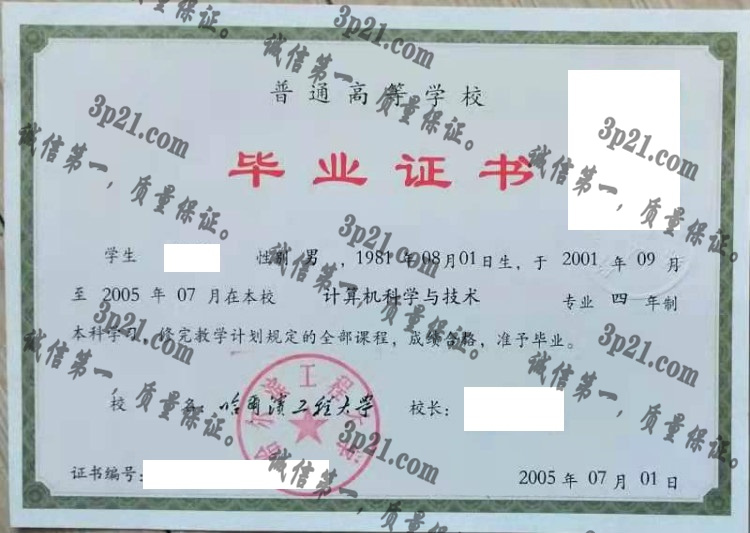 3p21.com
诚信第一，质量保证。
普通高等学校
毕业证书
学生 性别 男 ，1981 年 08月 01日生，于 2001 年 09 月
至 2005 年 07 月在本校 计算机科学与技术 专业 四 年制
本科学习，修完教学计划规定的全部课程，成绩合格，准予毕业。
校 名：哈尔滨工程大学 校长：
哈尔滨工程大学
证书编号：
2005 年 07 月 01日
3p21.com
诚信第一，质量保证。
3p21.com
诚信第一，质量保证。
3p21.com
诚信第一，质量保证。
3p21.com
诚信第一，质量保证。
3p21.com
诚信第一，质量保证。
3p21.com
诚信第一，质量保证。
3p21.com
诚信第一，质量保证。